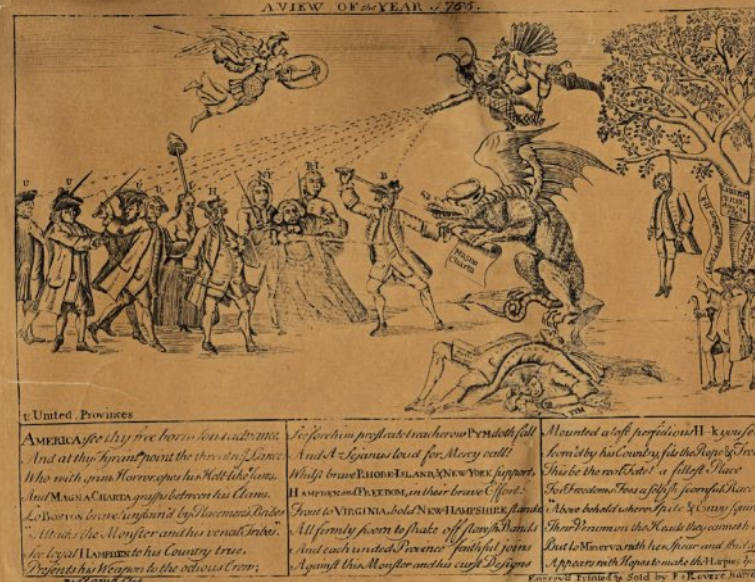 A VIEW OF the YEAR 1765.
U U U H NY RI B
Magna Charta
PYM
U United Provinces
AMERICA, see thy free born sons advance,
And at thy Tyrant point the threat'ning Lance!
Who with grim Horror opes his Hell-like Jaws,
And MAGNA CHARTA grasps between his Claws.
Lo BOSTON brave! unstain'd by Placemen's Bribes
Attack the Monster and his venal Tribes.
See loyal HAMPDEN to his Country true,
Presents his Weapon to the odious Crew;
See forc'him prostrate treacherous PYM doth fall
And A-z Sejanus loud for Mercy call!
Whilst brave RHODE-ISLAND, & NEW YORK support,
HAMPDEN and FREEDOM, in their brave Effort;
Front to VIRGINIA, bold NEW-HAMPSHIRE stands
All firmly sworn to shake off slavish Bands
And each united Province faithful joins
Against this Monster and his curst Designs
Mounted aloft perfidious H--k you se
Scorn'd by his Country fits the Rope & Tree
This be the real Fate! a fittest Place
For Freedoms Foes a selfish scornful Race
Above behold where Spite & Envy figur
Their Venom on the Heads they cannot
But lo Minerva with her Spear and
Appears with Hopes to make the Harpies
Engrav'd Printed & Sold by P. Revere